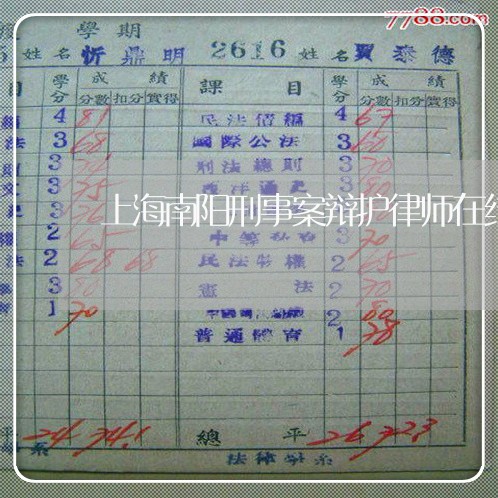 7788.com
學期
姓名 忻鼎明 2616 姓名 賈泰德
目 學分 成績 課目 學分 成績
分數 扣分 實得 分數 扣分 實得
4 81 民法債編 4 67
法 3 68 國際公法 3 60
3 刑法總則 3 70
文 3 75 西洋通史 3 80
上海南阳刑事案辩护律师在线
2 65 3 70
法 2 68 68 民法物權 2 65
3 80 憲法 2 70
1 70 2 80
普通體育 1 78
平 24 74.1 總平 26 72.3
系 法律學系